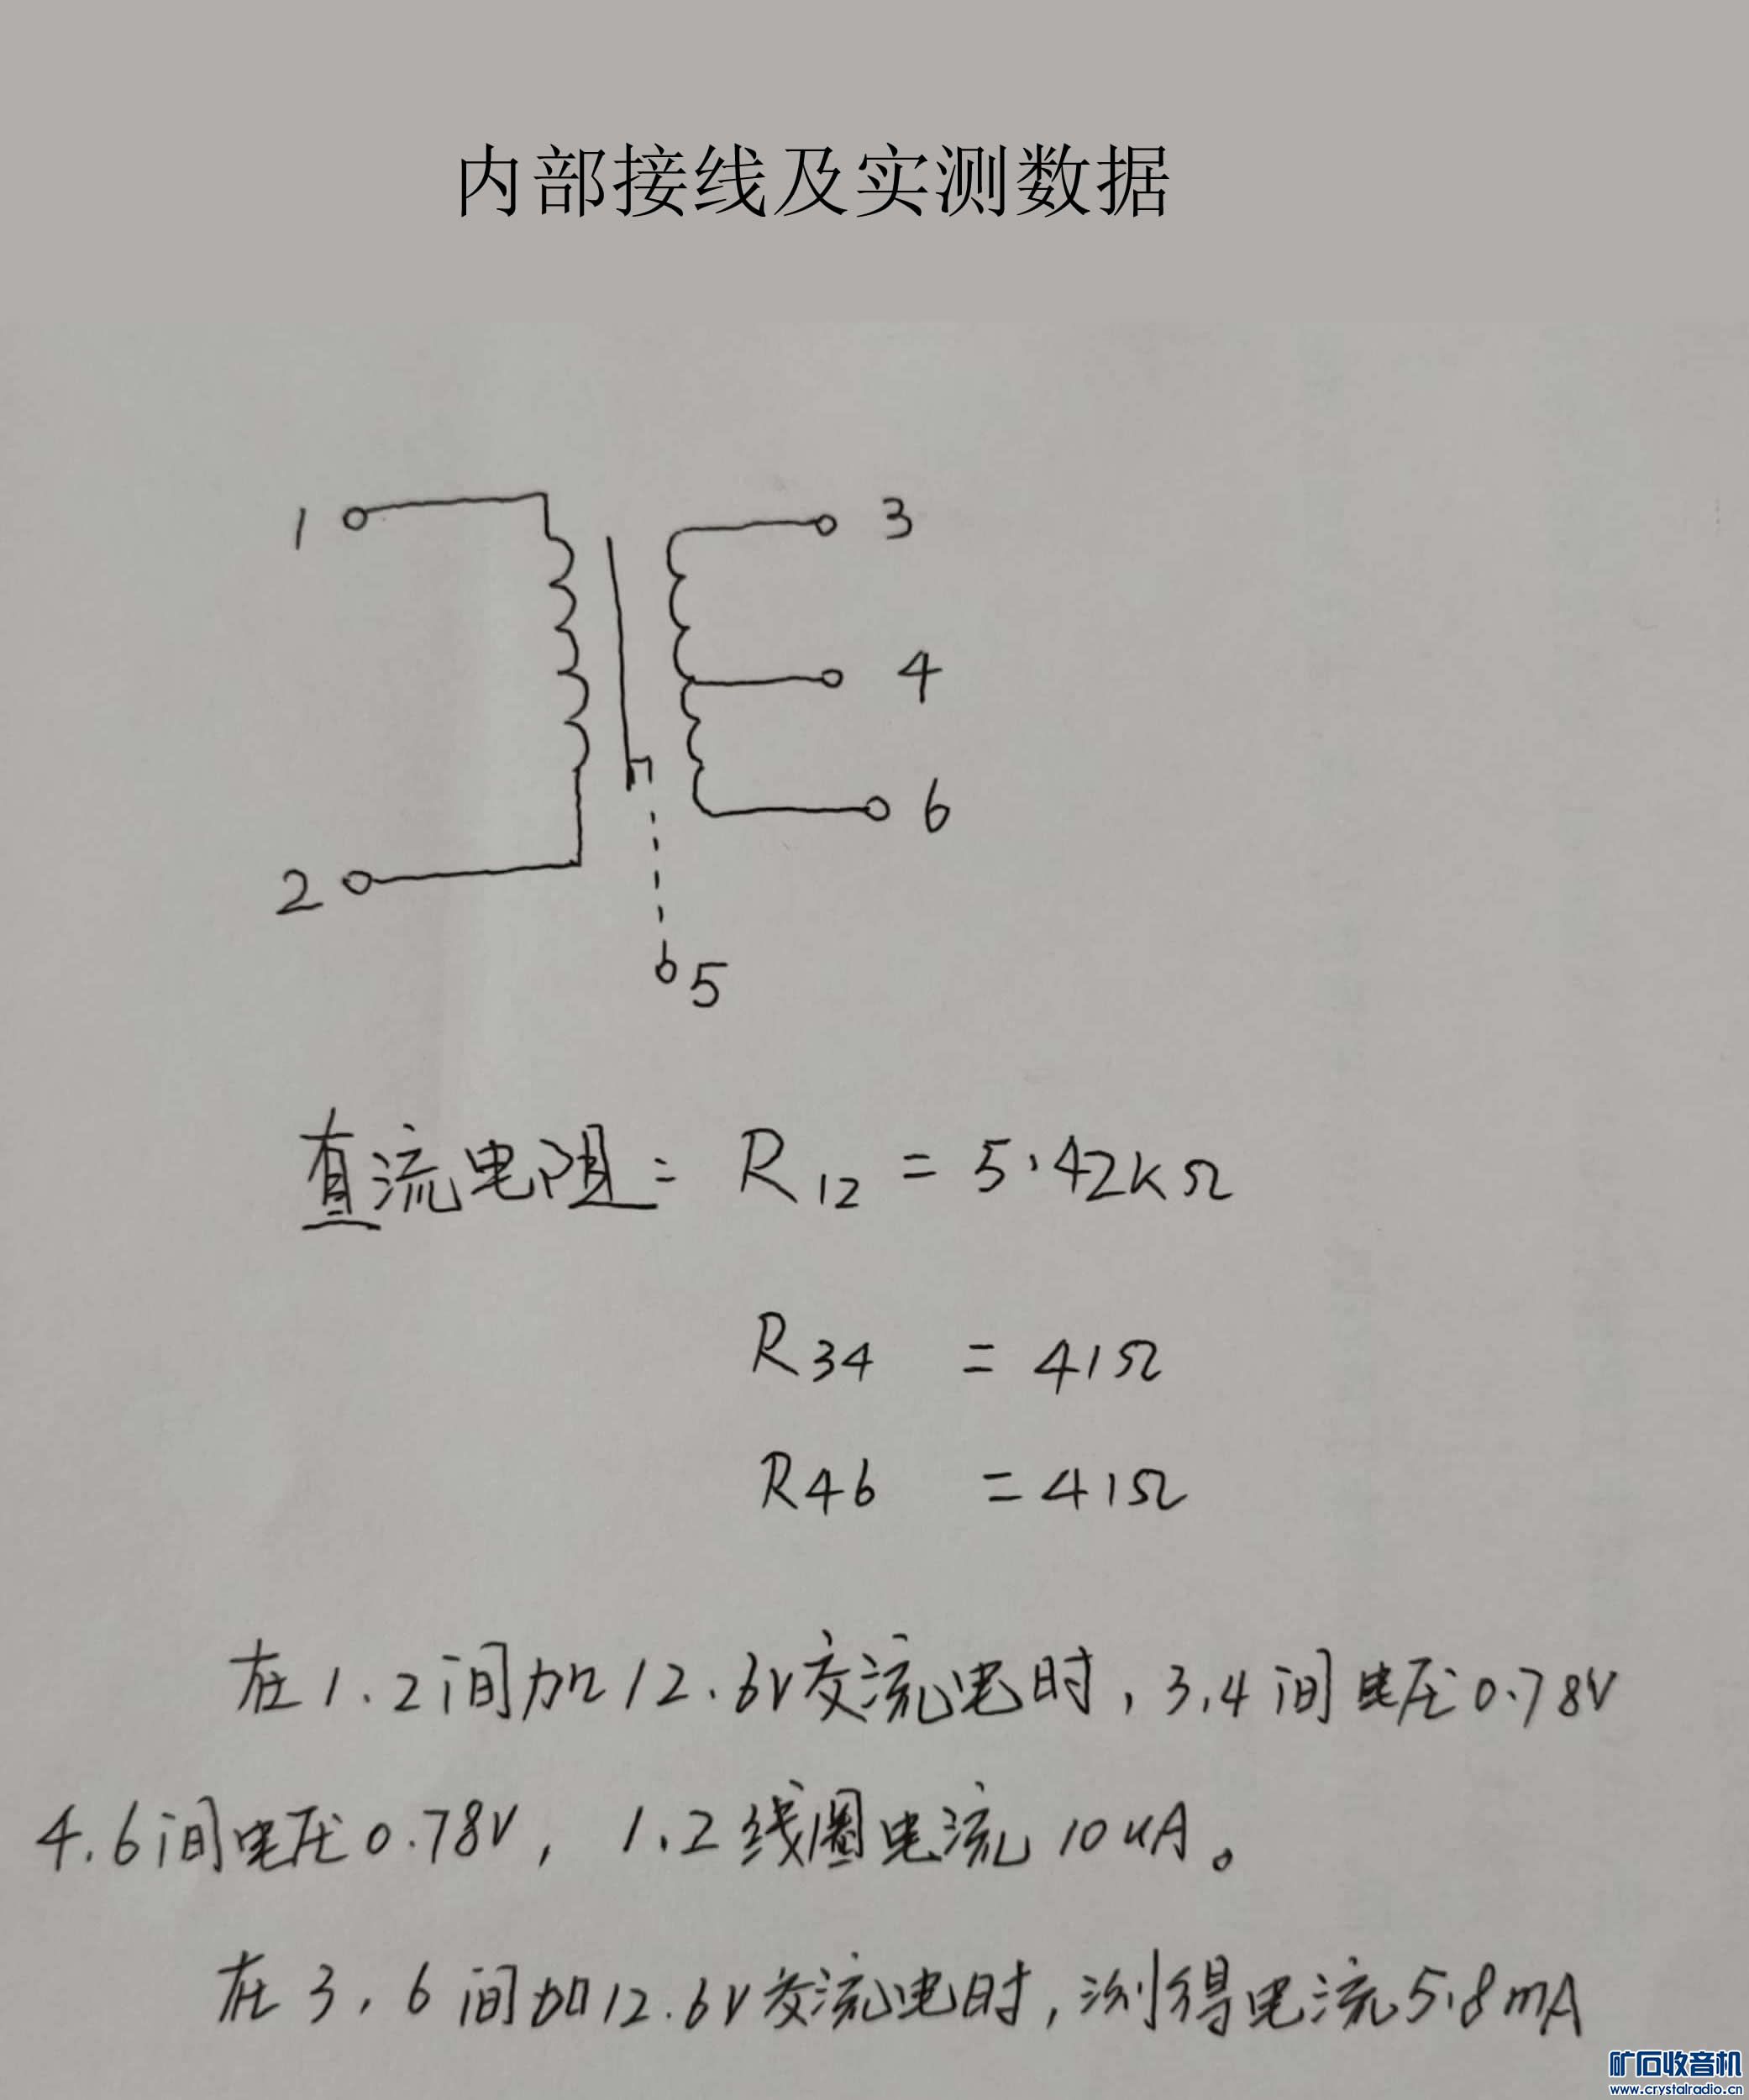 内部接线及实测数据
1
3
4
6
2
5
直流电阻: R12 = 5.42kΩ
R34 = 41Ω
R46 = 41Ω
在1.2间加12.6V交流电时,3.4间电压0.78V
4.6间电压0.78V, 1.2线圈电流10uA。
在3.6间加12.6V交流电时,测得电流5.8mA
矿石收音机
www.crystalradio.cn